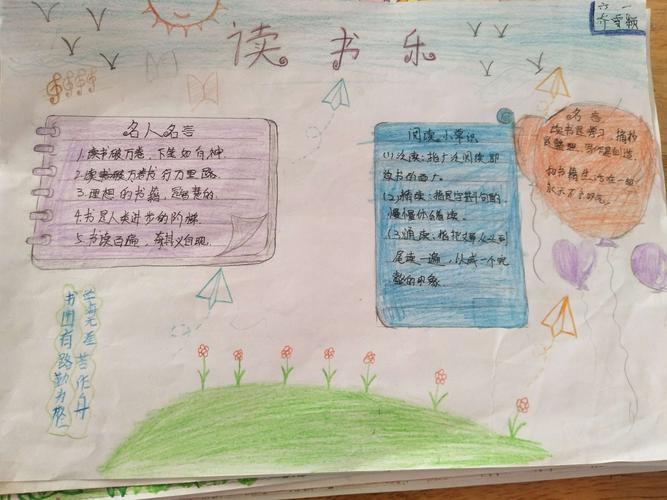 六一
读书乐
名人名言
1.读书破万卷，下笔如有神.
2.读破万卷书 行万里路.
3.理想的书籍，是智慧的.
4.书是人类进步的阶梯.
5.书读百遍，其义自现.
阅读小常识
(1)泛读：指广泛阅读即
读书的面大.
(2)精读：指是字斟句酌，
慢慢仔细读.
(3)通读：指把文章从头到
尾读一遍，从成一个完
整的印象.
名言
读书是学习，摘抄
是整理，写作是创造.
和书籍生活在一起，
永远不会叹气.
书山有路勤为径
学海无涯苦作舟